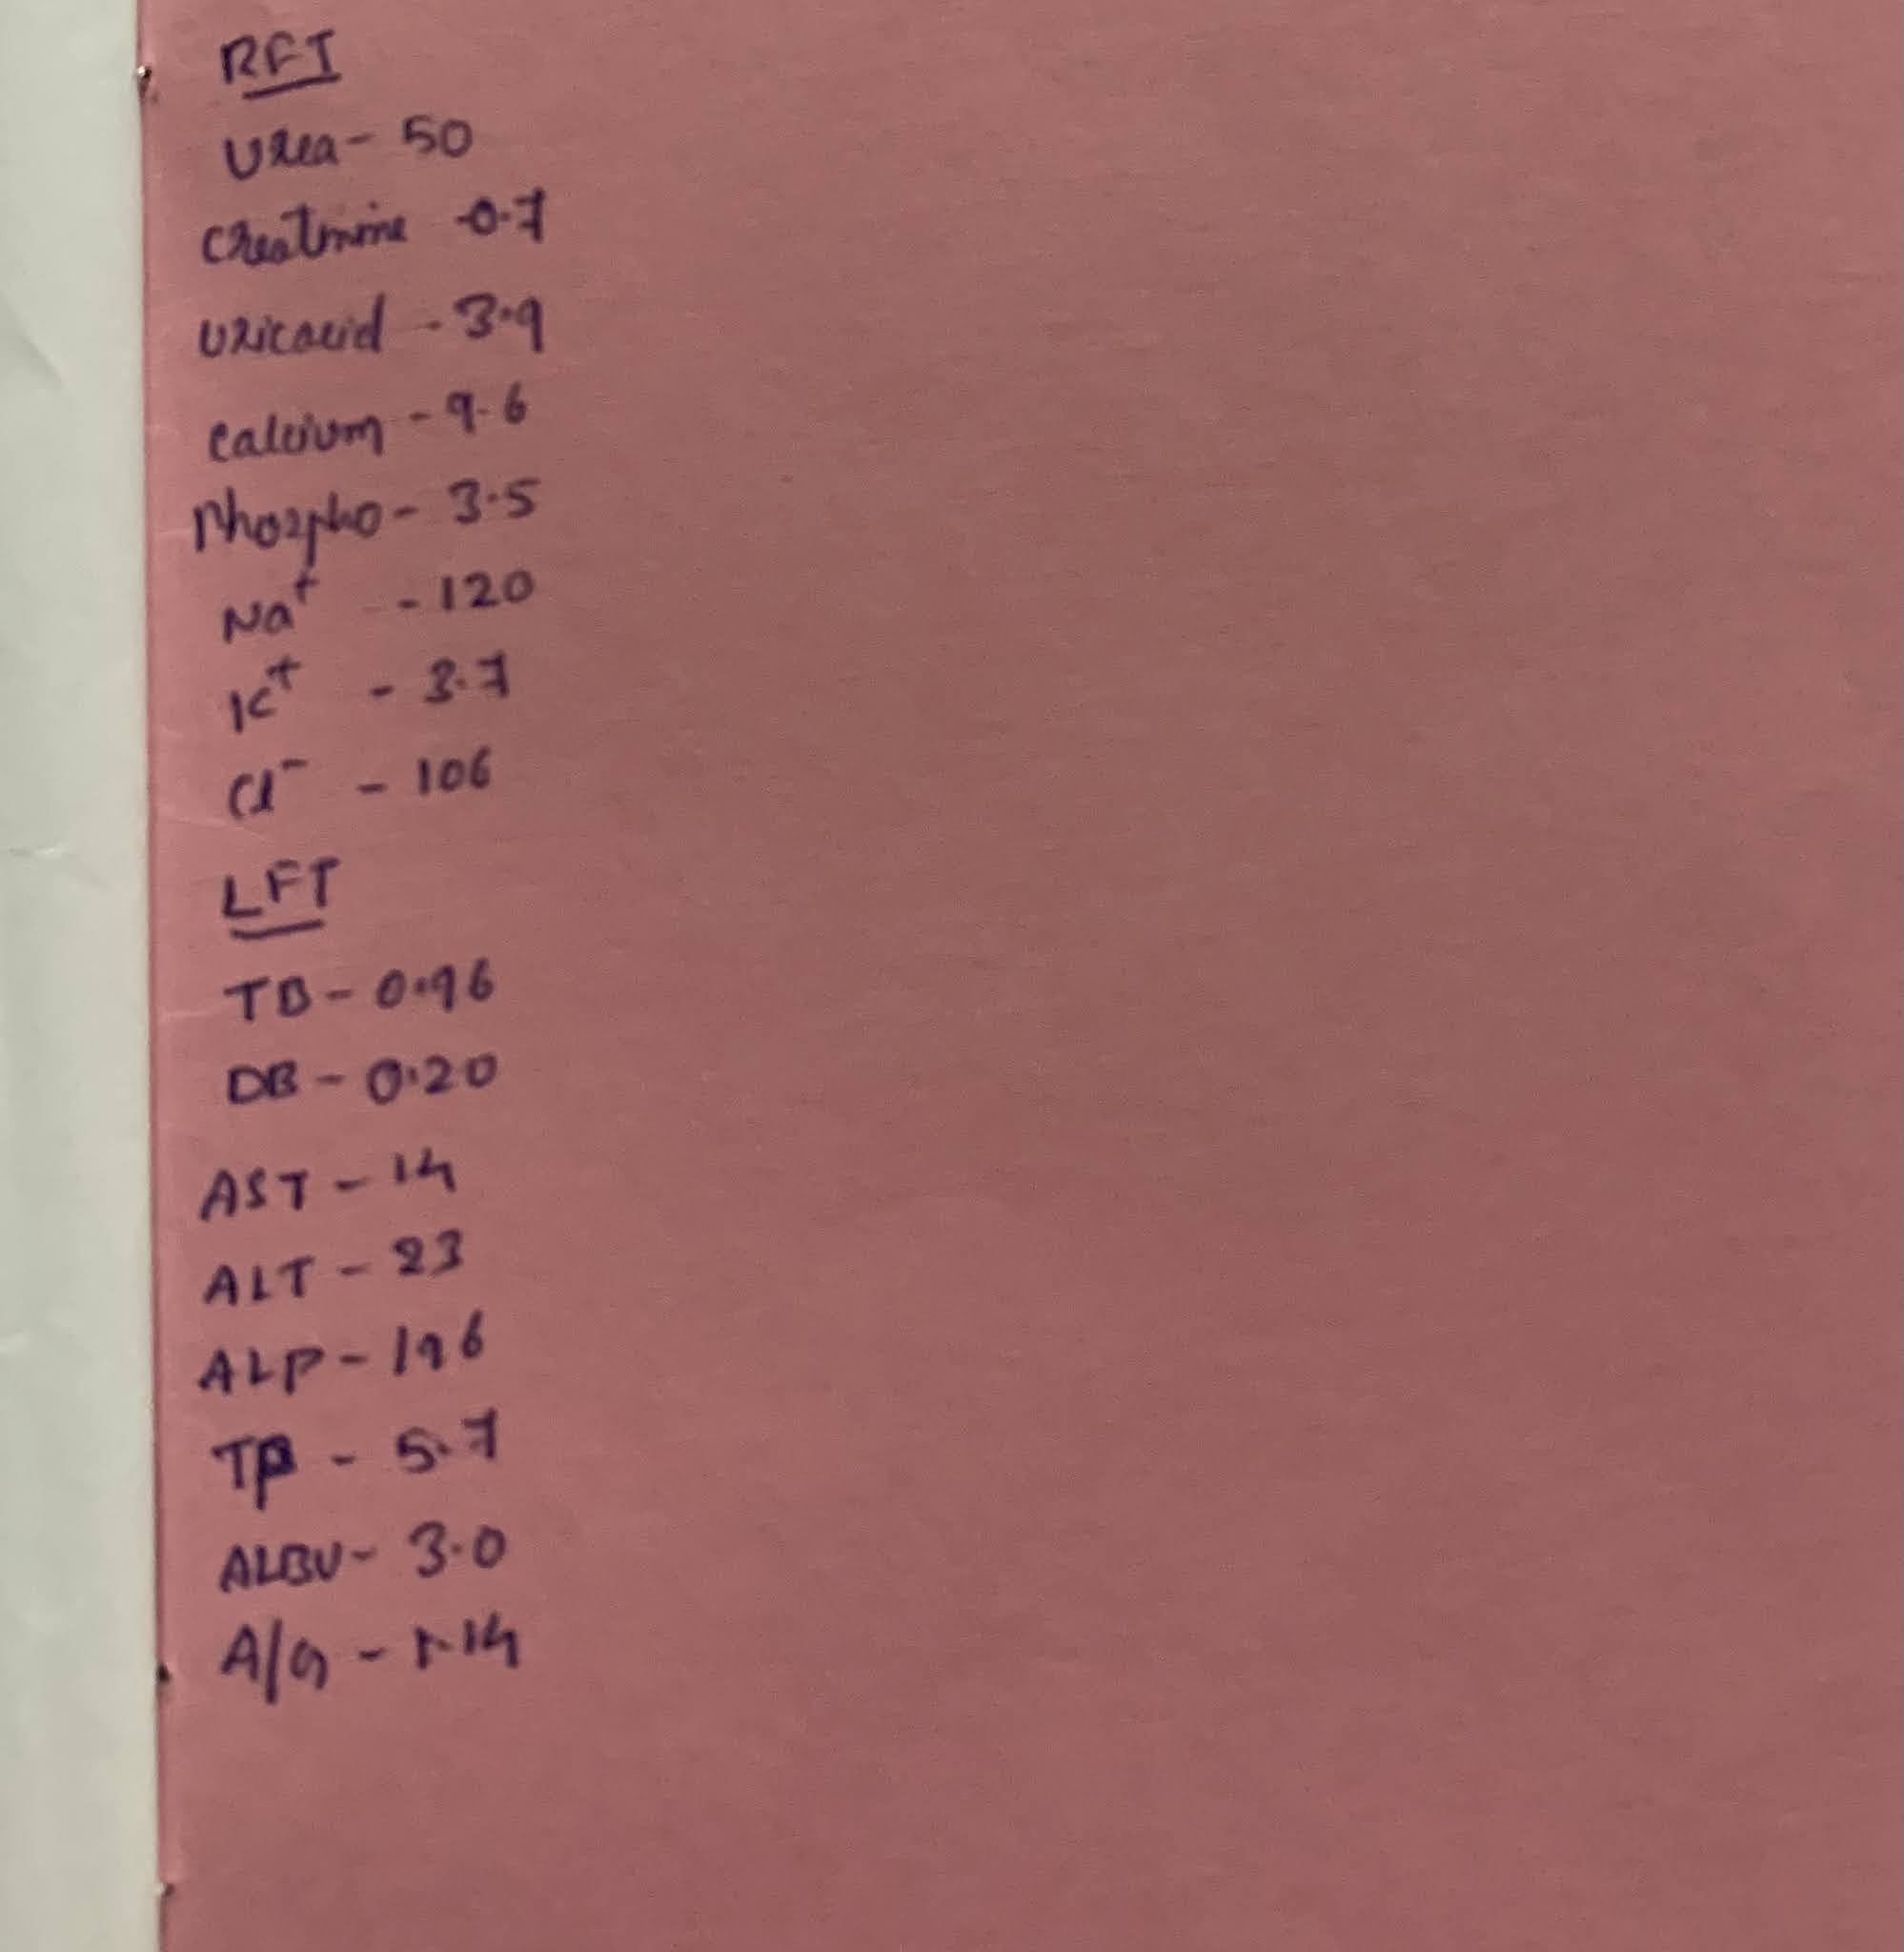 RFT
Urea - 50
Creatinine - 0.7
Uric acid - 3.9
Calcium - 9.6
Phospho - 3.5
Na⁺ - 120
K⁺ - 3.7
Cl⁻ - 106
LFT
TB - 0.96
DB - 0.20
AST - 14
ALT - 23
ALP - 196
TP - 5.7
ALBU - 3.0
A/G - 1.14